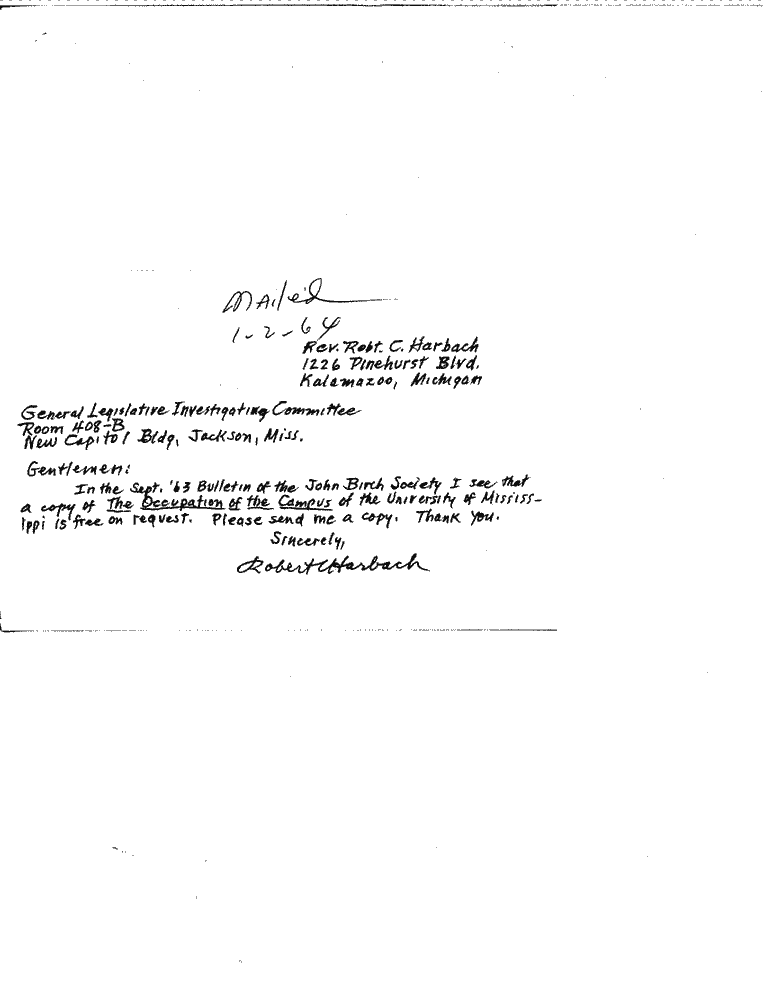 Mailed
1-2-64
Rev. Robt. C. Harbach
1226 Pinehurst Blvd.
Kalamazoo, Michigan
General Legislative Investigating Committee
Room 408-B
New Capitol Bldg, Jackson, Miss.
Gentlemen:
In the Sept. '63 Bulletin of the John Birch Society I see that
a copy of The Occupation of the Campus of the University of Mississ-
ippi is free on request. Please send me a copy. Thank you.
Sincerely,
Robert C Harbach